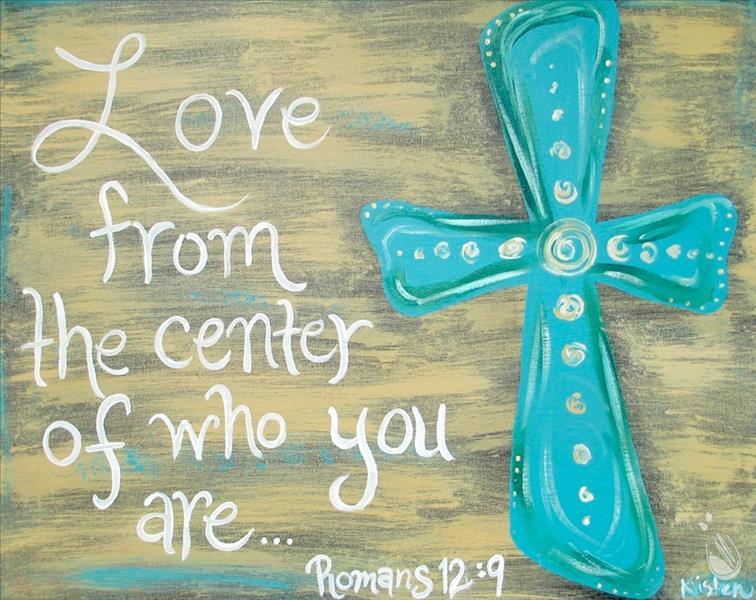 Love
from
the center
of who you
are...
Romans 12:9
Kristen